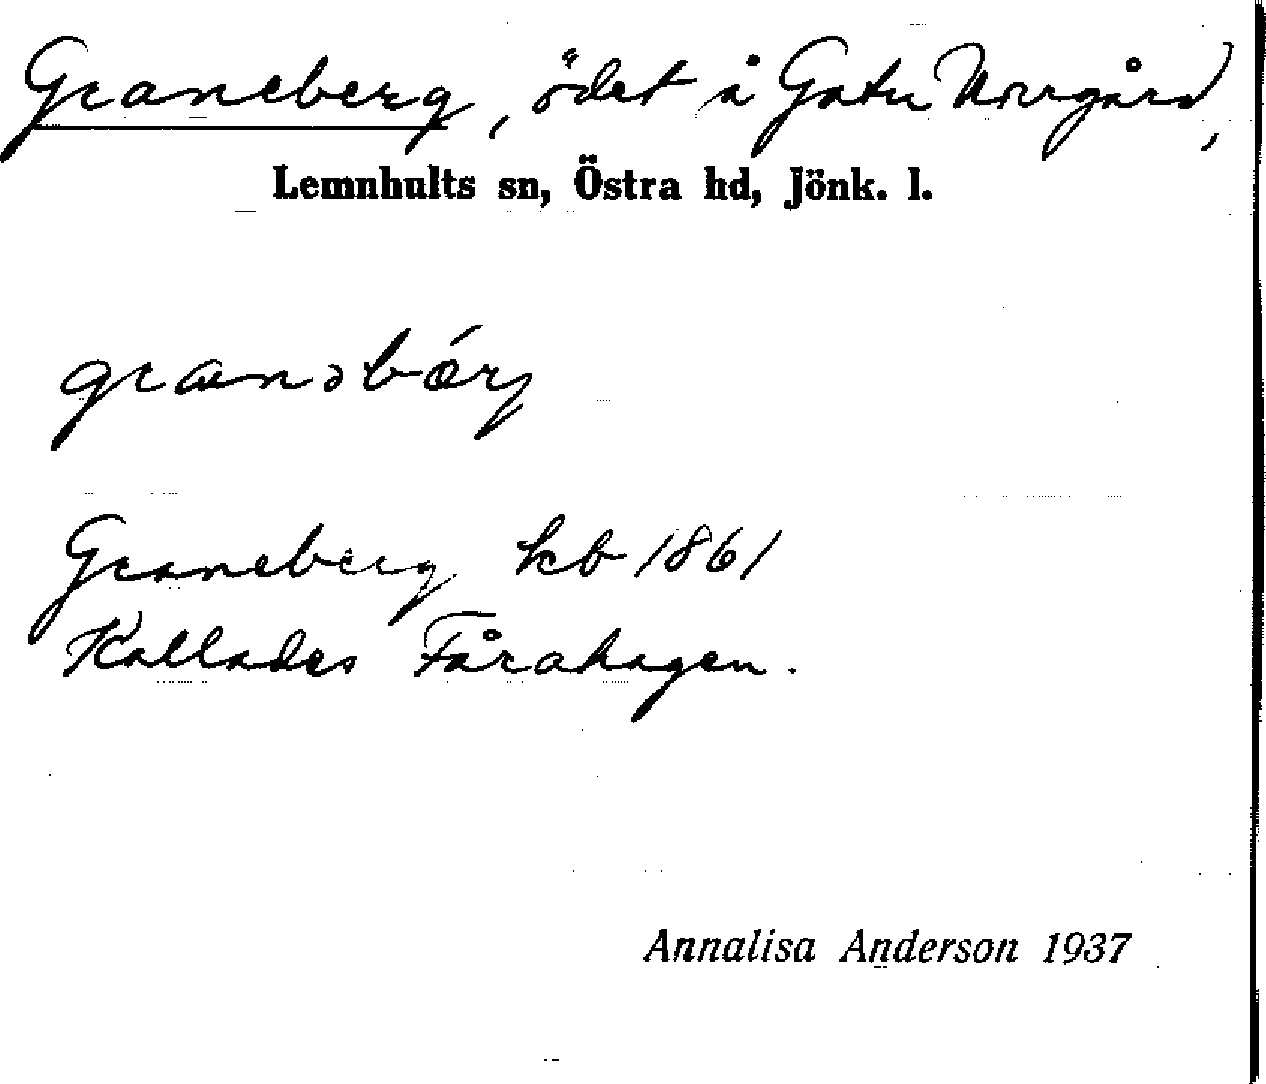 Graneberg, ödet å Gatu Norrgård,
Lemnhults sn, Östra hd, Jönk. l.
Graneberg kb 1861
Kallades Fårahagen.
Annalisa Anderson 1937